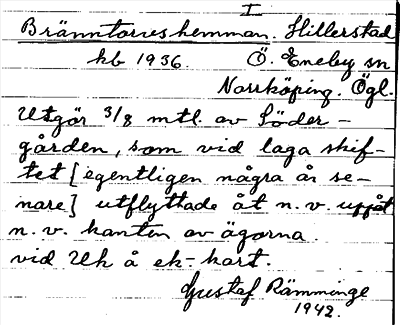 I
Bränntorvshemman. Hillerstad
kb 1936. Ö. Eneby sn
Norrköping. Ögl.
Utgör 3/8 mtl. av Söder-
gården, som vid laga skif-
tet [egentligen några år se-
nare] utflyttade åt n. v. uppåt
n. v. kanten av ägorna.
vid Uh å ek-kart.
Gustaf Rämminge
1942.